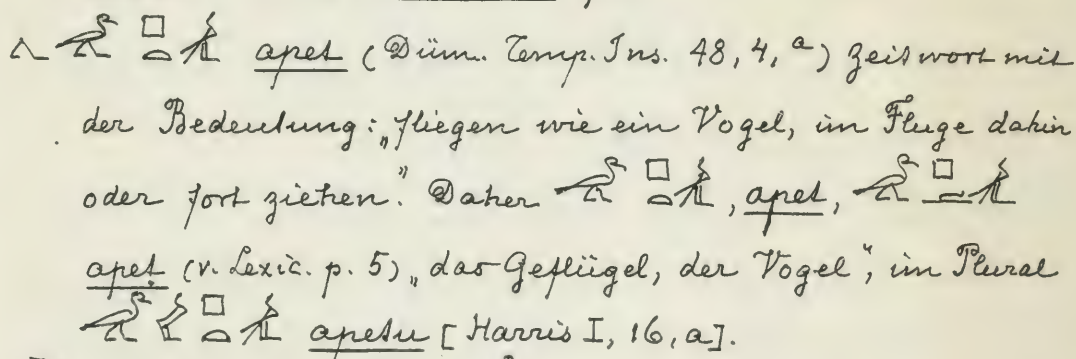 apet (Düm. Temp. Ins. 48, 4, a) Zeitwort mit
der Bedeutung: „fliegen wie ein Vogel, im Fluge dahin
oder fort ziehen." Daher , apet,
apet (v. Lexic. p. 5) „das Geflügel, der Vogel", im Plural
apetu [Harris I, 16, a].